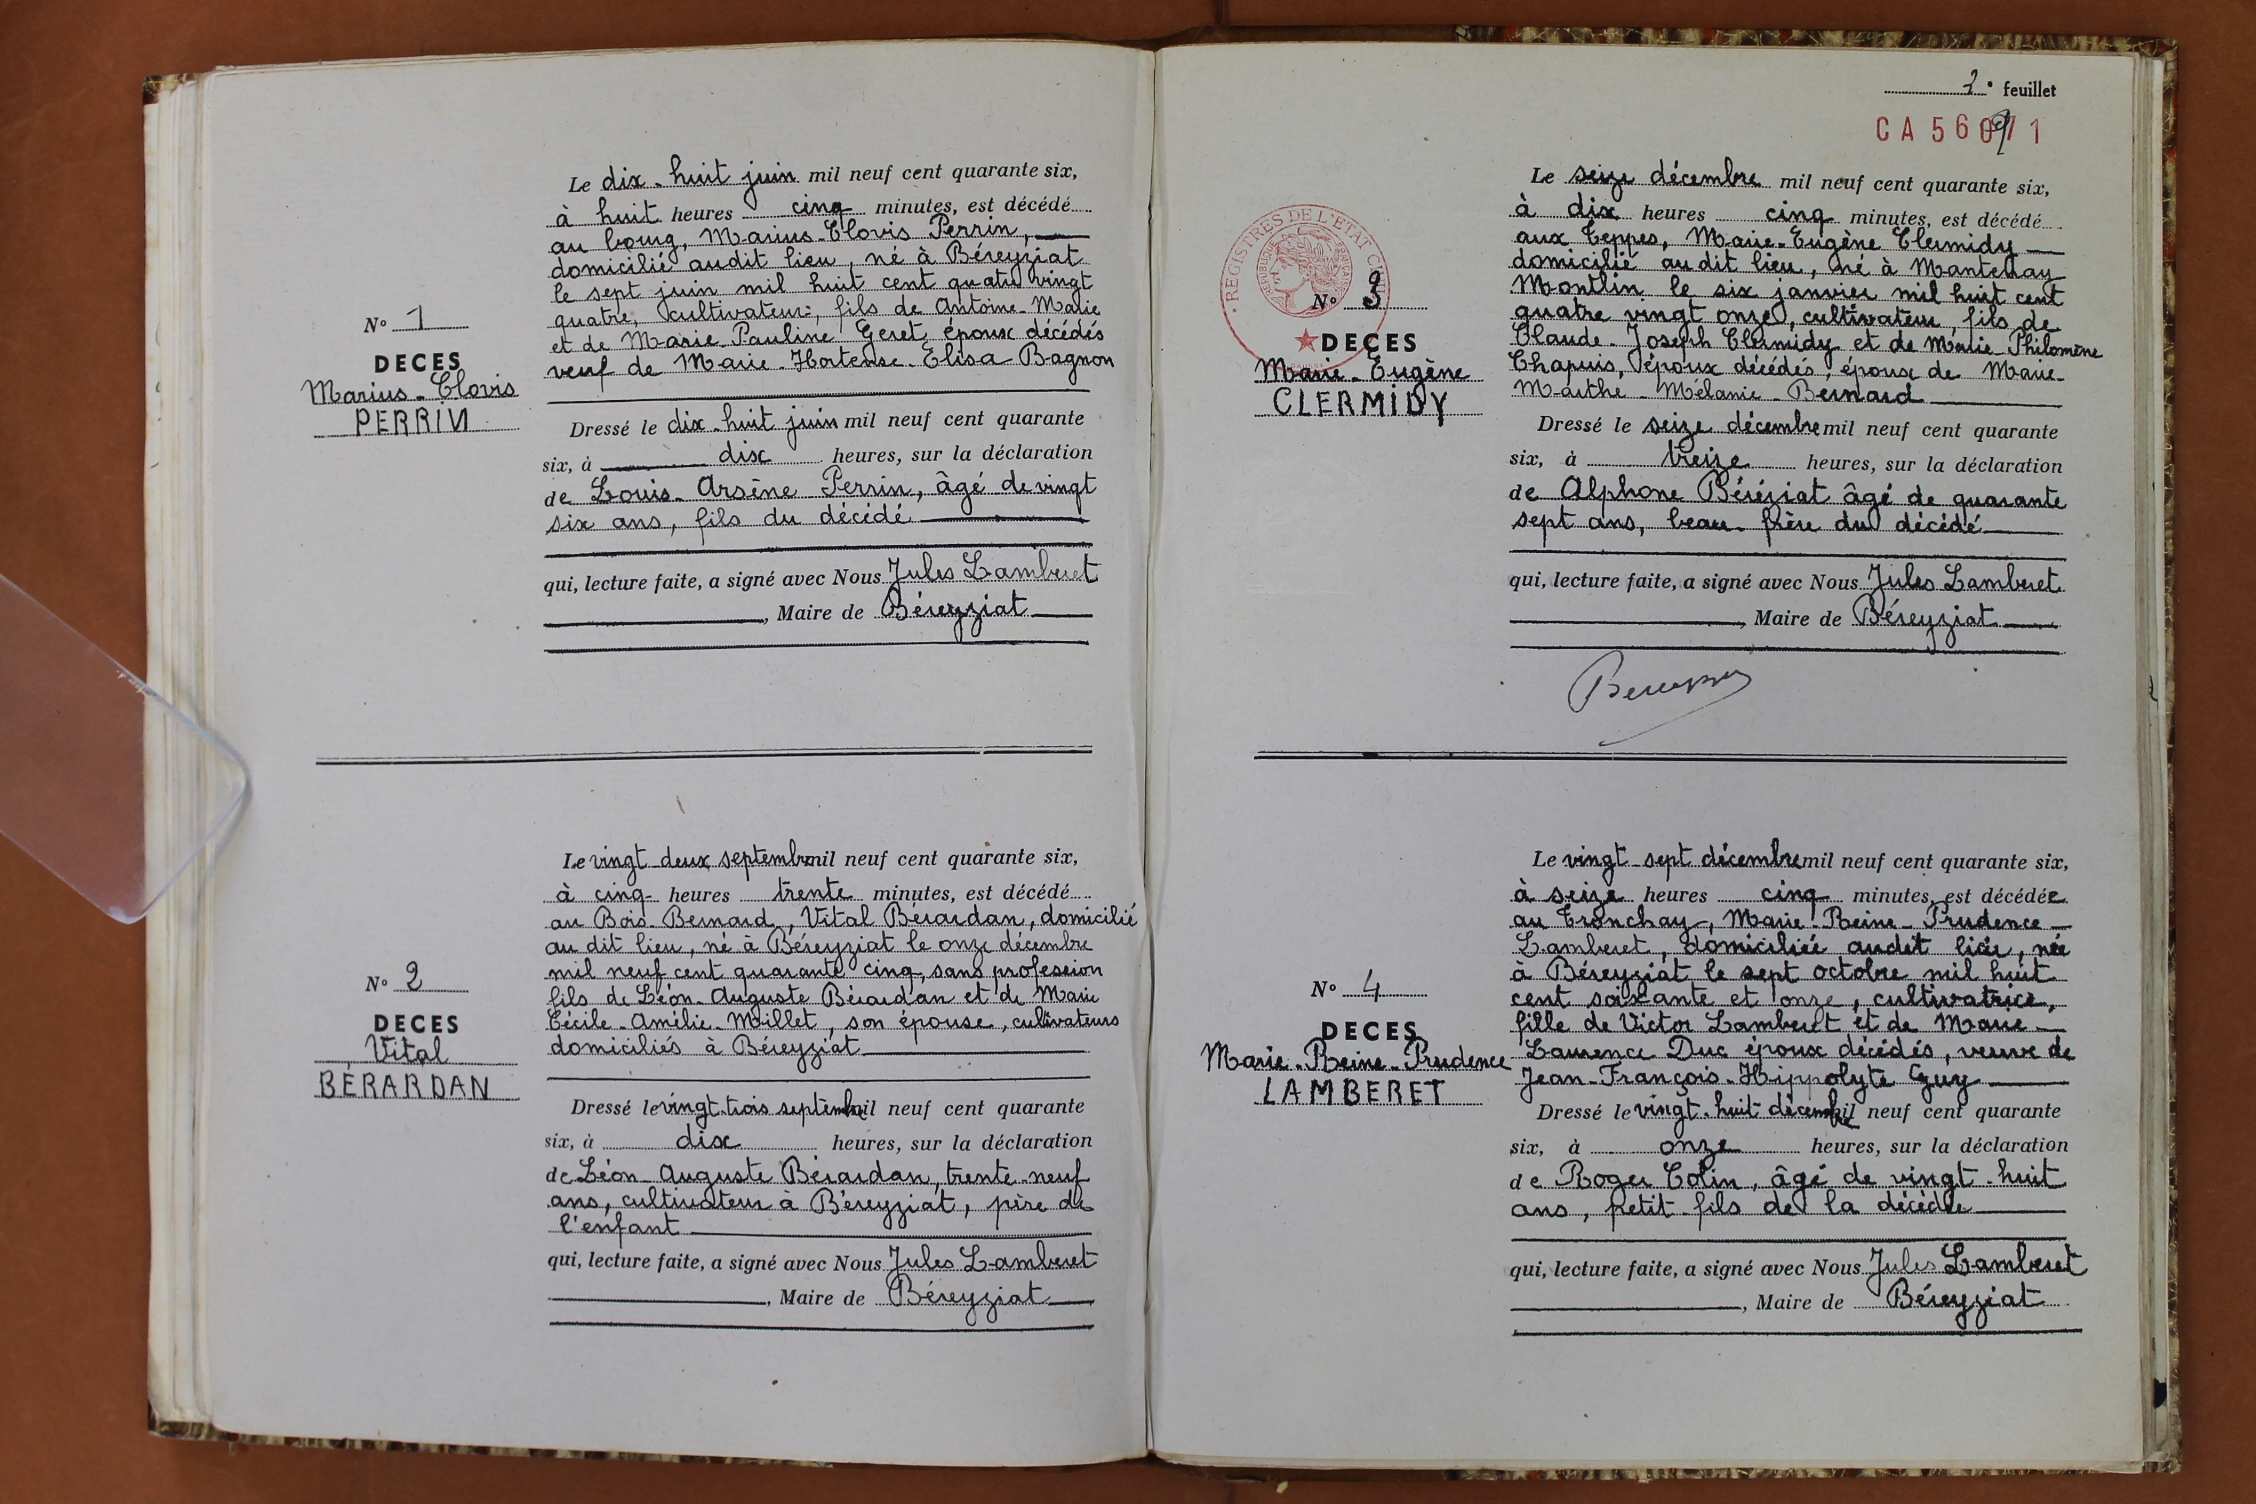 Le dix-huit juin mil neuf cent quarante six,
à huit heures cinq minutes, est décédé
au bourg, Marius-Clovis Perrin,
domicilié audit lieu, né à Béreyziat
le sept juin mil huit cent quatre vingt
quatre, cultivateur, fils de Antoine-Marie
et de Marie-Pauline Geret, époux décédés
veuf de Marie-Hortense-Elisa Bagnon
N° 1
DECES
Marius-Clovis
PERRIN
Dressé le dix-huit juin mil neuf cent quarante
six, à dix heures, sur la déclaration
de Louis-Arsène Perrin, âgé de vingt
six ans, fils du décédé
qui, lecture faite, a signé avec Nous Jules Lamberet
, Maire de Béreyziat
Le vingt-deux septembre mil neuf cent quarante six,
à cinq heures trente minutes, est décédé
au Bois-Bernard, Vital Bérardan, domicilié
au dit lieu, né à Béreyziat le onze décembre
mil neuf cent quarante cinq, sans profession
fils de Léon-Auguste Bérardan et de Marie
Cécile-Amélie-Millet, son épouse, cultivateurs
domiciliés à Béreyziat
N° 2
DECES
Vital
BÉRARDAN
Dressé le vingt-trois septembre mil neuf cent quarante
six, à dix heures, sur la déclaration
de Léon-Auguste Bérardan, trente-neuf
ans, cultivateur à Béreyziat, père de
l'enfant
qui, lecture faite, a signé avec Nous Jules Lamberet
, Maire de Béreyziat
2e feuillet
CA 56071
Le seize décembre mil neuf cent quarante six,
à dix heures cinq minutes, est décédé
aux Teppes, Marie-Eugène Clermidy
domicilié au dit lieu, né à Mantenay
Montlin le six janvier mil huit cent
quatre vingt onze, cultivateur, fils de
Claude-Joseph Clermidy et de Marie-Philomène
Chapuis, époux décédés, époux de Marie-
Marthe-Mélanie-Bernard
REGISTRES DE L'ETAT C
N° 3
DECES
Marie-Eugène
CLERMIDY
Dressé le seize décembre mil neuf cent quarante
six, à treize heures, sur la déclaration
de Alphone Béréziat âgé de quarante
sept ans, beau-frère du décédé
qui, lecture faite, a signé avec Nous Jules Lamberet
, Maire de Béreyziat
Le vingt-sept décembre mil neuf cent quarante six,
à seize heures cinq minutes, est décédée
au Tronchay, Marie-Reine-Prudence
Lamberet, domiciliée audit lieu, née
à Béreyziat le sept octobre mil huit
cent soixante et onze, cultivatrice,
fille de Victor Lamberet et de Marie-
Laurence Duc époux décédés, veuve de
Jean-François-Hippolyte Guy
N° 4
DECES
Marie-Reine-Prudence
LAMBERET
Dressé le vingt-huit décembre mil neuf cent quarante
six, à onze heures, sur la déclaration
de Roger Colin, âgé de vingt-huit
ans, petit-fils de la décédée
qui, lecture faite, a signé avec Nous Jules Lamberet
, Maire de Béreyziat